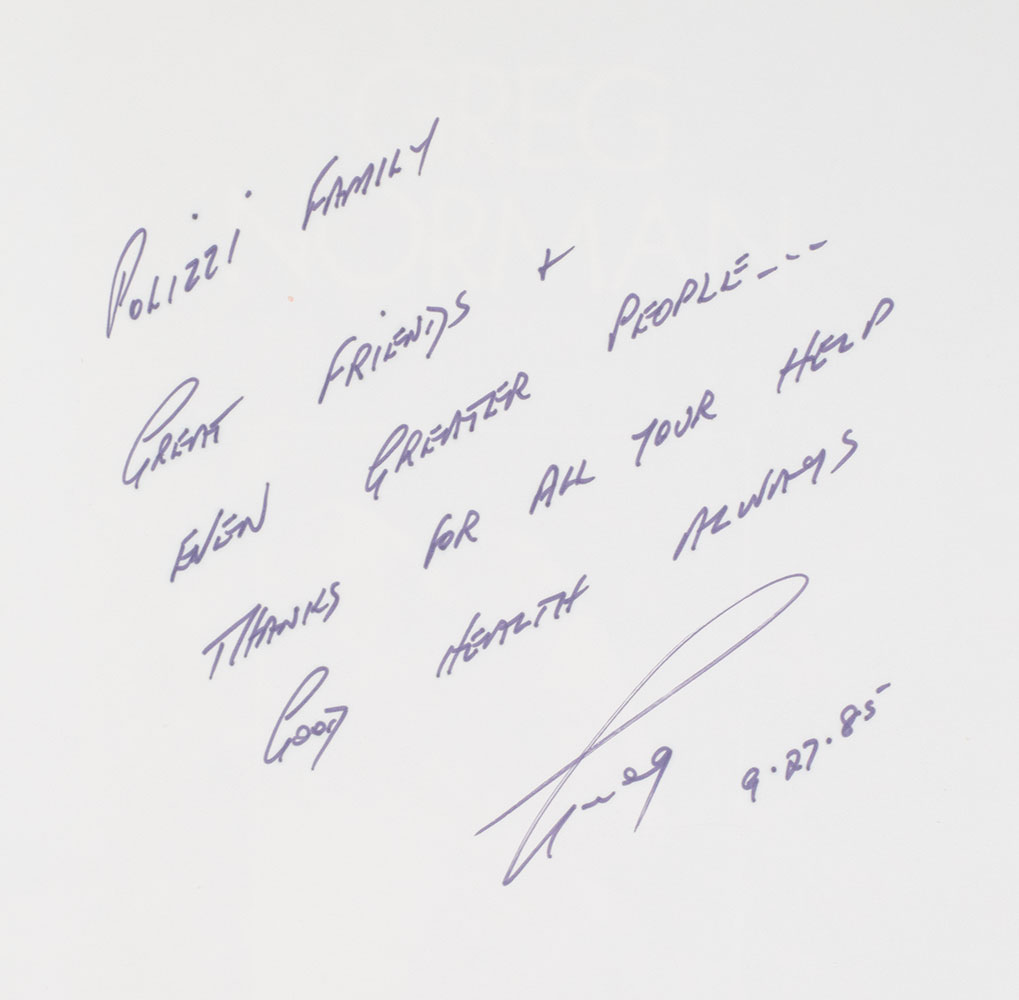 GREG
NORMAN
POLIZZI FAMILY
GREAT FRIENDS +
EVEN GREATER PEOPLE---
THANKS FOR ALL YOUR HELP
GOOD HEALTH ALWAYS
Greg 9.27.85